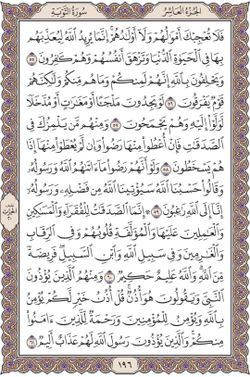 الجزء العاشر
سورة التوبة
فَلَا تُعْجِبْكَ أَمْوَٰلُهُمْ وَلَآ أَوْلَٰدُهُمْ إِنَّمَا يُرِيدُ ٱللَّهُ لِيُعَذِّبَهُم
بِهَا فِي ٱلْحَيَوٰةِ ٱلدُّنْيَا وَتَزْهَقَ أَنفُسُهُمْ وَهُمْ كَٰفِرُونَ ٥٥
وَيَحْلِفُونَ بِٱللَّهِ إِنَّهُمْ لَمِنكُمْ وَمَا هُم مِّنكُمْ وَلَٰكِنَّهُمْ
قَوْمٌ يَفْرَقُونَ ٥٦ لَوْ يَجِدُونَ مَلْجَـًٔا أَوْ مَغَٰرَٰتٍ أَوْ مُدَّخَلًا
لَّوَلَّوْا۟ إِلَيْهِ وَهُمْ يَجْمَحُونَ ٥٧ وَمِنْهُم مَّن يَلْمِزُكَ فِي
ٱلصَّدَقَٰتِ فَإِنْ أُعْطُوا۟ مِنْهَا رَضُوا۟ وَإِن لَّمْ يُعْطَوْا۟ مِنْهَآ إِذَا
هُمْ يَسْخَطُونَ ٥٨ وَلَوْ أَنَّهُمْ رَضُوا۟ مَآ ءَاتَىٰهُمُ ٱللَّهُ وَرَسُولُهُۥ
وَقَالُوا۟ حَسْبُنَا ٱللَّهُ سَيُؤْتِينَا ٱللَّهُ مِن فَضْلِهِۦ وَرَسُولُهُۥٓ
إِنَّآ إِلَى ٱللَّهِ رَٰغِبُونَ ٥٩ ۞ إِنَّمَا ٱلصَّدَقَٰتُ لِلْفُقَرَآءِ وَٱلْمَسَٰكِينِ
وَٱلْعَٰمِلِينَ عَلَيْهَا وَٱلْمُؤَلَّفَةِ قُلُوبُهُمْ وَفِي ٱلرِّقَابِ
وَٱلْغَٰرِمِينَ وَفِي سَبِيلِ ٱللَّهِ وَٱبْنِ ٱلسَّبِيلِ فَرِيضَةً
مِّنَ ٱللَّهِ وَٱللَّهُ عَلِيمٌ حَكِيمٌ ٦٠ وَمِنْهُمُ ٱلَّذِينَ يُؤْذُونَ
ٱلنَّبِيَّ وَيَقُولُونَ هُوَ أُذُنٌ قُلْ أُذُنُ خَيْرٍ لَّكُمْ يُؤْمِنُ
بِٱللَّهِ وَيُؤْمِنُ لِلْمُؤْمِنِينَ وَرَحْمَةٌ لِّلَّذِينَ ءَامَنُوا۟
مِنكُمْ وَٱلَّذِينَ يُؤْذُونَ رَسُولَ ٱللَّهِ لَهُمْ عَذَابٌ أَلِيمٌ ٦١
١٩٦